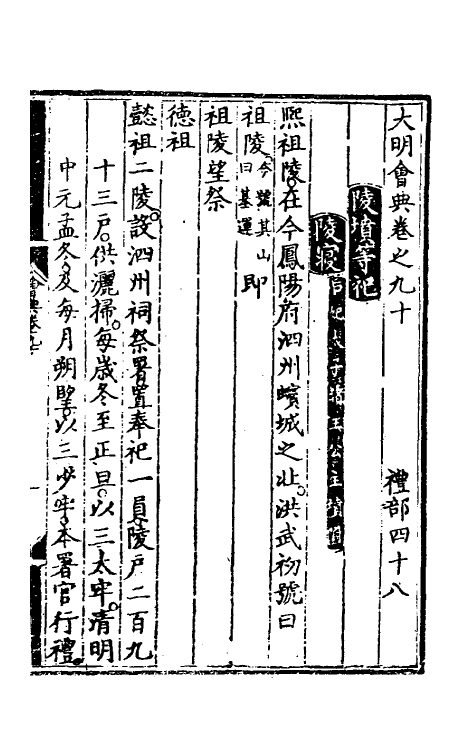 大明會典卷之九十 禮部四十八
陵墳等祀
陵寢 后妃太子諸王公主墳附
熙祖陵在今鳳陽府泗州蠙城之北洪武初號曰
祖陵 今號其山曰基運 即
祖陵望祭
德祖
懿祖二陵設泗州祠祭署置奉祀一員陵户二百九
十三户供灑掃每歲冬至正旦以三太牢清明
中元孟冬及每月朔望以三少牢本署官行禮